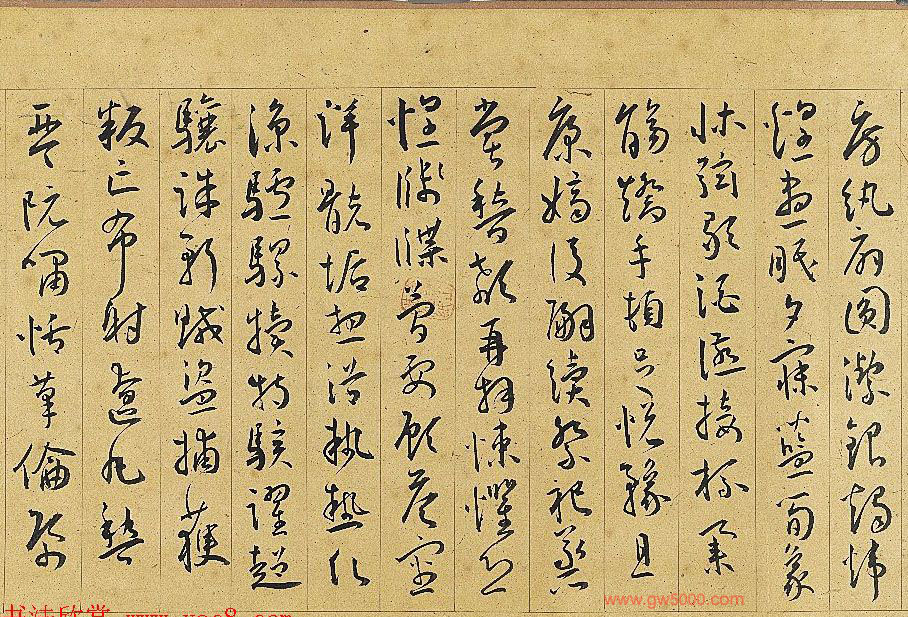 房紈扇圓潔銀燭煒
煌晝眠夕寐藍筍象
床弦歌酒讌接杯舉
觴矯手頓足悅豫且
康嫡後嗣續祭祀蒸
嘗稽顙再拜悚懼恐
惶牋牒簡要顧答審
詳骸垢想浴執熱願
涼驢騾犢特駭躍超
驤誅斬賊盜捕獲
叛亡布射遼丸嵇
琴阮嘯恬筆倫紙
www.gw5000.com
书法欣赏 www.yac8.com